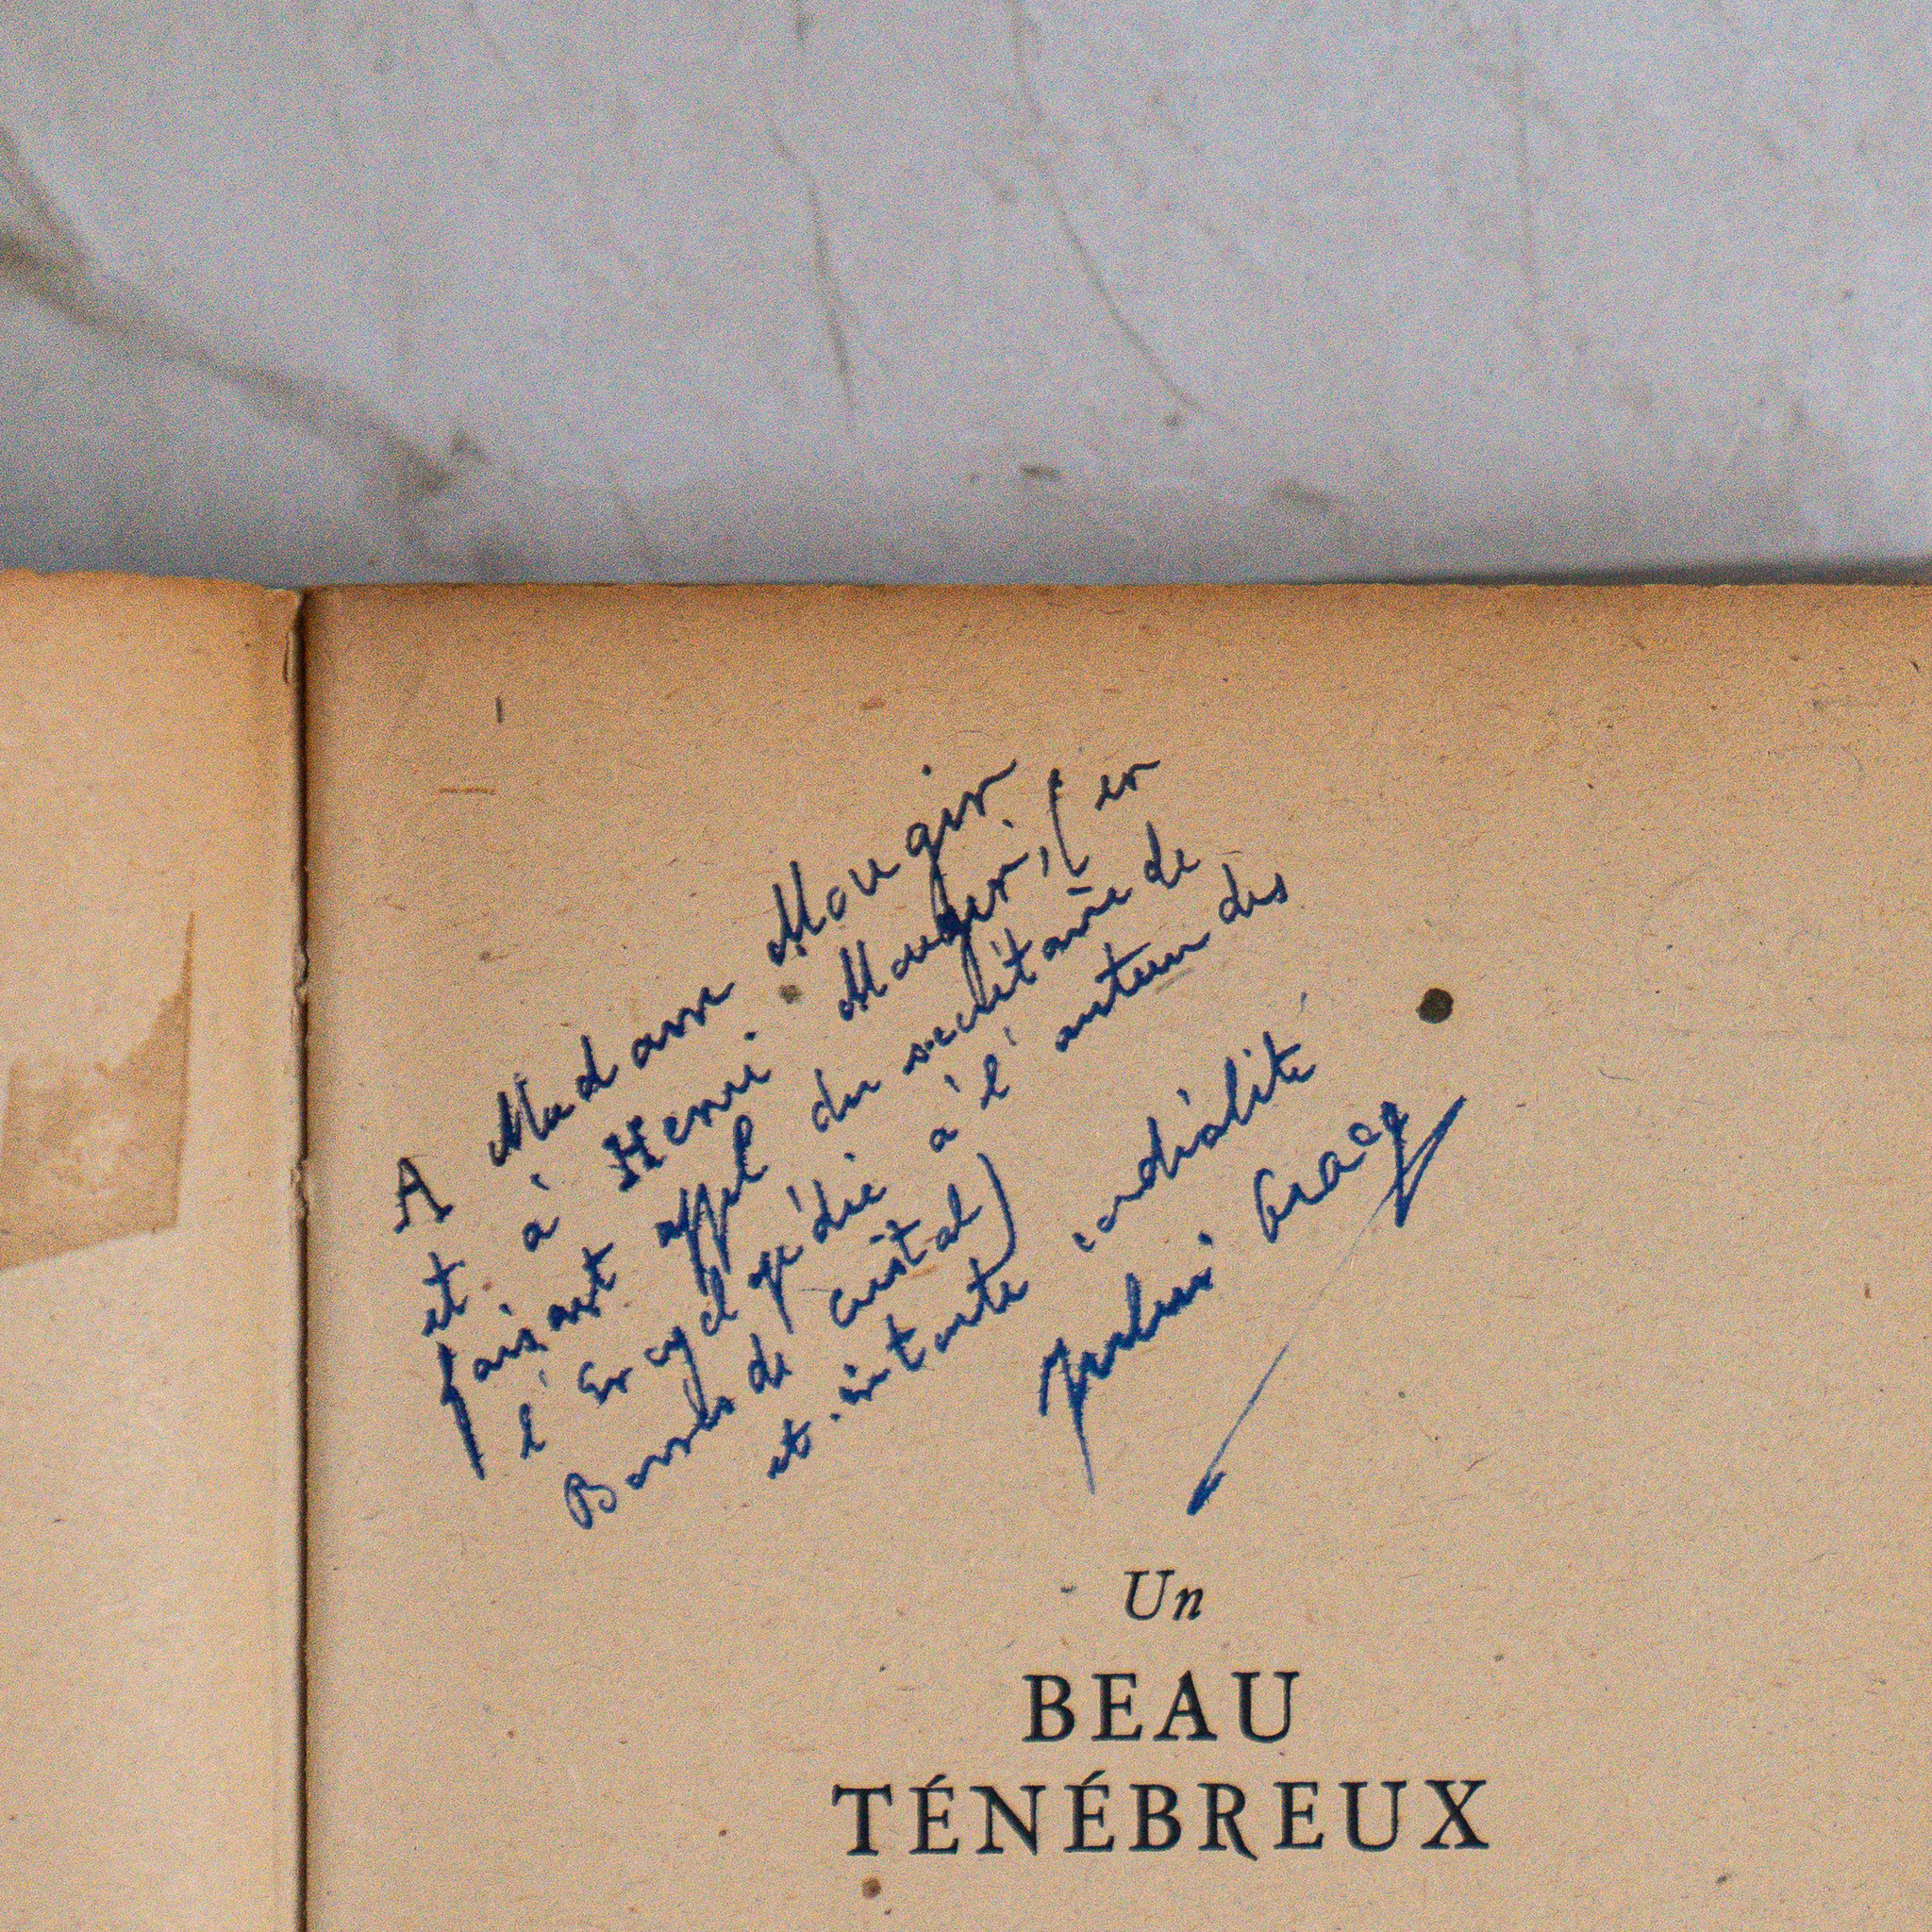 A Madame Mougin
et à Henri Mougin, (en
faisant appel du secrétaire de
l'Encyclopédie à l'auteur des
Boules de cristal)
et en toute cordialité
Julien Gracq
Un
BEAU
TÉNÉBREUX